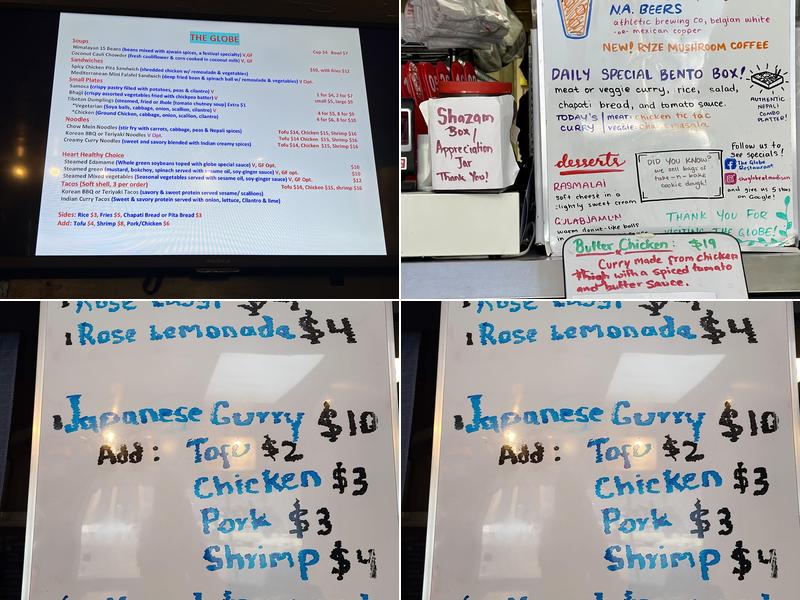 THE GLOBE
Soups
Himalayan 15 Beans (beans mixed with ajwain spices, a festival specialty) V,GF Cup $4 Bowl $7
Coconut Cauli Chowder (fresh cauliflower & corn cooked in coconut milk) V, GF
Sandwiches
Spicy Chicken Pita Sandwich (shredded chicken w/ remoulade & vegetables) $10, with fries $12
Mediterranean Mini Falafel Sandwich (deep fried bean & spinach ball w/ remoulade & vegetables) V Opt.
Small Plates
Samosa (crispy pastry filled with potatoes, peas, & cilantro) V 1 for $4, 2 for $7
Bhaji (crispy assorted vegetables fried with chickpea batter) V small $5, large $9
Tibetan Dumplings (steamed, fried or Jhole (tomato chutney soup) Extra $1
*Vegetarian (Soya balls, cabbage, onion, scallion, cilantro) V 4 for $5, 8 for $9
*Chicken (Ground Chicken, cabbage, onion, scallion, cilantro) 4 for $6, 8 for $10
Noodles
Chow Mein Noodles (stir fry with carrots, cabbage, peas & Nepali spices) Tofu $14, Chicken $15, Shrimp $16
Korean BBQ or Teriyaki Noodles V Opt. Tofu $14, Chicken $15, Shrimp $16
Creamy Curry Noodles (sweet and savory blended with Indian creamy spices) Tofu $14, Chicken $15, Shrimp $16
Heart Healthy Choice
Steamed Edamame (Whole green soybeans toped with globe special sauce) V, GF Opt. $10
Steamed green (mustard, bokchoy, spinach served with sesame oil, soy-ginger sauce) V, GF Opt. $10
Steamed Mixed vegetables (Seasonal vegetables served with sesame oil, soy-ginger sauce) V, GF Opt. $12
Tacos (Soft shell, 3 per order) Tofu $14, Chicken $15, shrimp $16
Korean BBQ or Teriyaki Tacos (savory & sweet protein served sesame/ scallions)
Indian Curry Tacos (Sweet & savory protein served with onion, lettuce, Cilantro & lime)
Sides: Rice $3, Fries $5, Chapati Bread or Pita Bread $3
Add: Tofu $4, Shrimp $8, Pork/Chicken $6
N.A. BEERS
athletic brewing co, belgian white
-or- mexican copper
NEW! RYZE MUSHROOM COFFEE
DAILY SPECIAL BENTO BOX!
meat or veggie curry, rice, salad,
chapati bread, and tomato sauce.
TODAY'S CURRY
MEAT: chicken tic tac
VEGGIE: chana masala
AUTHENTIC
NEPALI
COMBO
PLATTER!
desserts
RASMALAI
soft cheese in a
slightly sweet cream
GULABJAMUN
warm donut-like balls
DID YOU KNOW?
we sell bags of
take-n-bake
cookie dough!
Follow us to
see specials!
The Globe
Restaurant
and give us 5 stars
on Google!
THANK YOU FOR
VISITING THE GLOBE!
Shazam
Box/
Appreciation
Jar
Thank You!
Butter Chicken: $19
Curry made from chicken
thigh with a spiced tomato
and butter sauce.
Rose Lemonade $4
Japanese Curry $10
Add: Tofu $2
Chicken $3
Pork $3
Shrimp $4
Rose Lemonade $4
Japanese Curry $10
Add: Tofu $2
Chicken $3
Pork $3
Shrimp $4